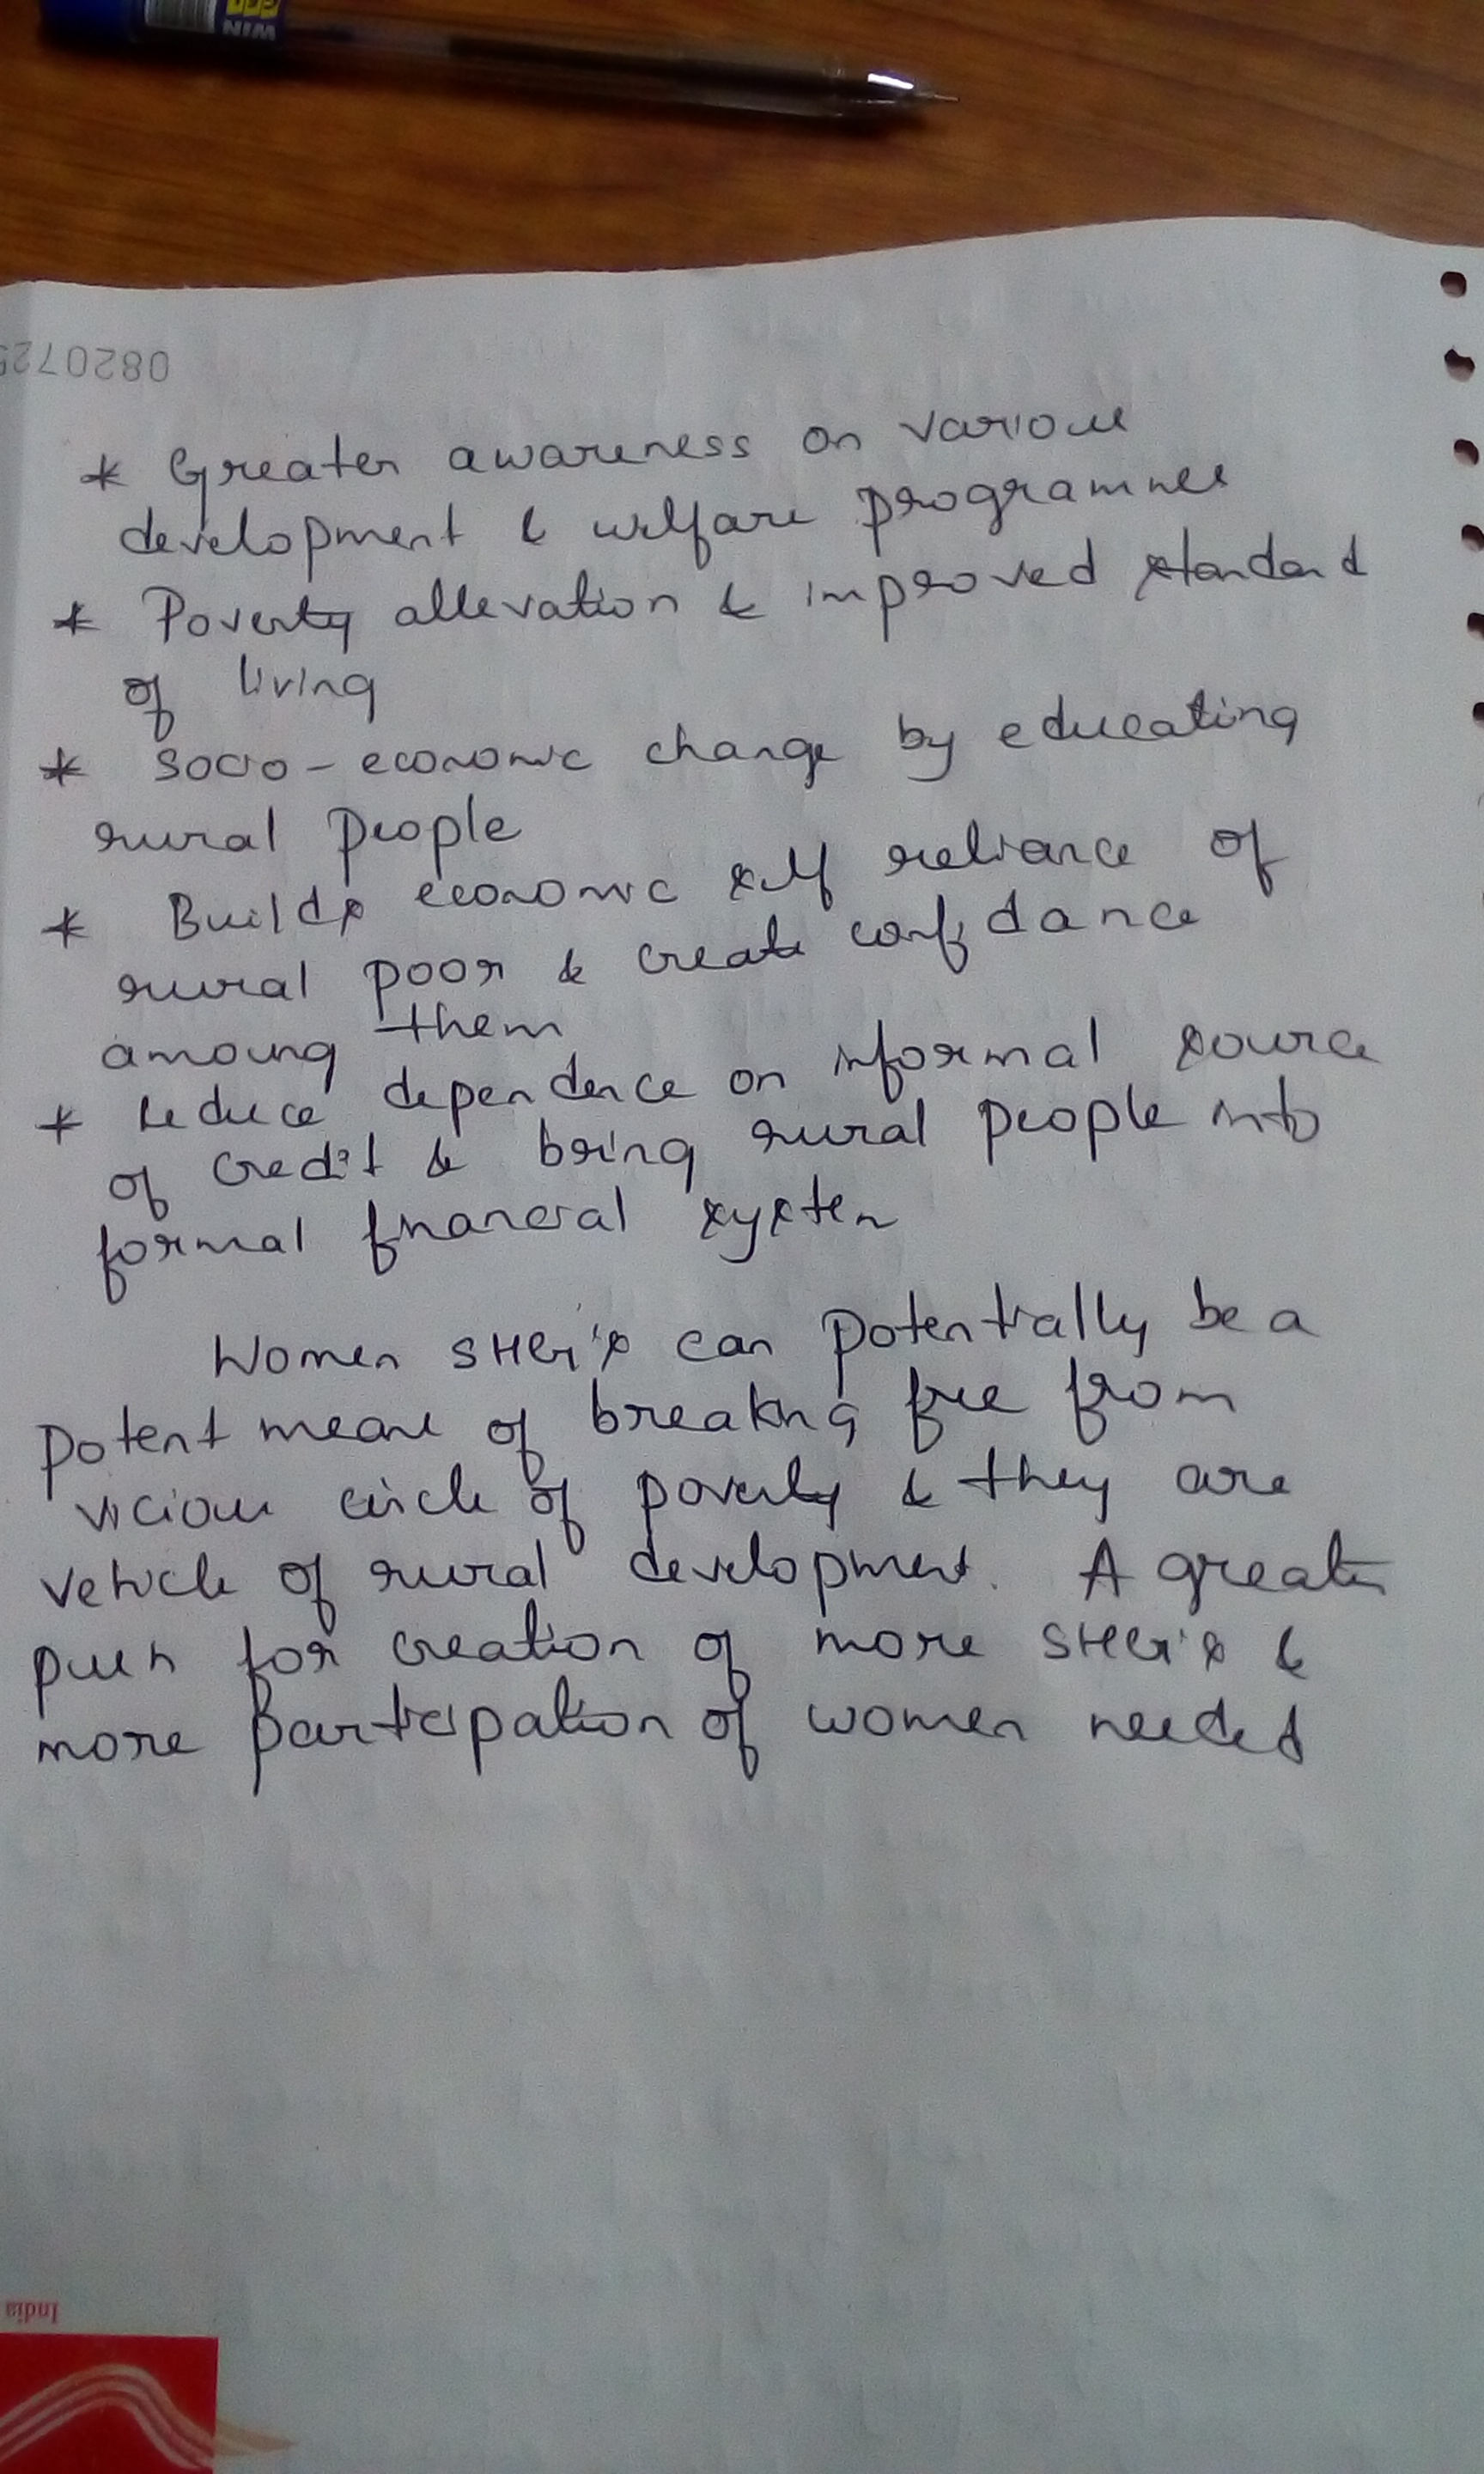 WIN
0820725
* Greater awareness on various
development & welfare programmes
* Poverty allevation & improved standard
of living
* socio-economic change by educating
rural people
* Builds economic self reliance of
rural poor & create confidance
amoung them
* reduce dependence on informal source
of credit & bring rural people into
formal financial system
Women SHG's can potentially be a
potent means of breaking free from
vicious circle of poverty & they are
vehicle of rural development. A greater
push for creation of more SHG's &
more participation of women needed
India